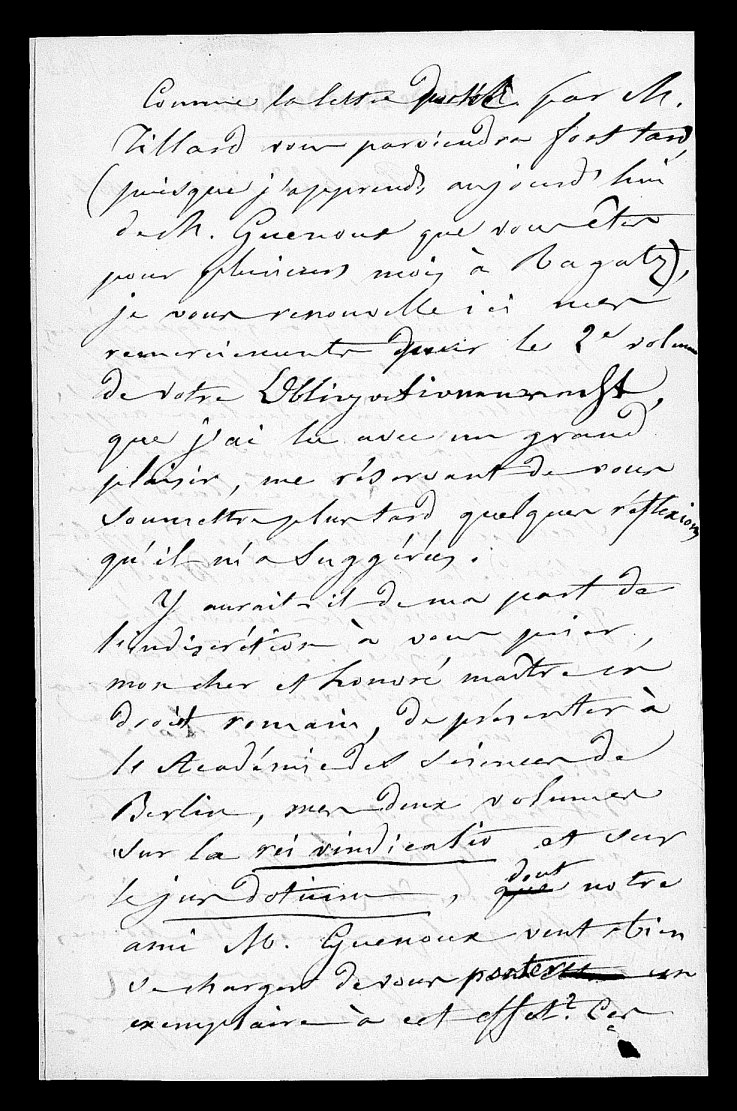 Comme la lettre portée par M.
Tillard vous parviendra fort tard,
(puisque j'apprends aujourd'hui
de M. Guenoux que vous êtes
pour plusieurs mois à Ragatz),
je vous renouvelle ici mes
remerciements pour le 2e volume
de votre Obligationenrecht,
que j'ai lu avec un grand
plaisir, me réservant de vous
soumettre plus tard quelques réflexions
qu'il m'a suggérées.
Y aurait-il de ma part de
l'indiscrétion à vous prier,
mon cher et honoré maître en
droit romain, de présenter à
l'Académie des sciences de
Berlin, mes deux volumes
sur la rei vindicatio et sur
le jus dotium, dont notre
ami M. Guenoux veut bien
se charger de vous porter un
exemplaire à cet effet? Ces